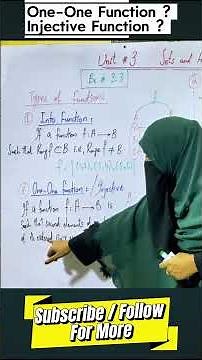 One-One Function ?
Injective Function ?
Unit # 3 Sets and
Ex # 3.3
Types of functions
① Into Function:
If a function f: A → B
Such that Rang f ⊂ B i.e, Range f ≠ B
② One-One function / Injective
If a function f: A → B is
Such that second elements
of its ordered
Subscribe / Follow
For More